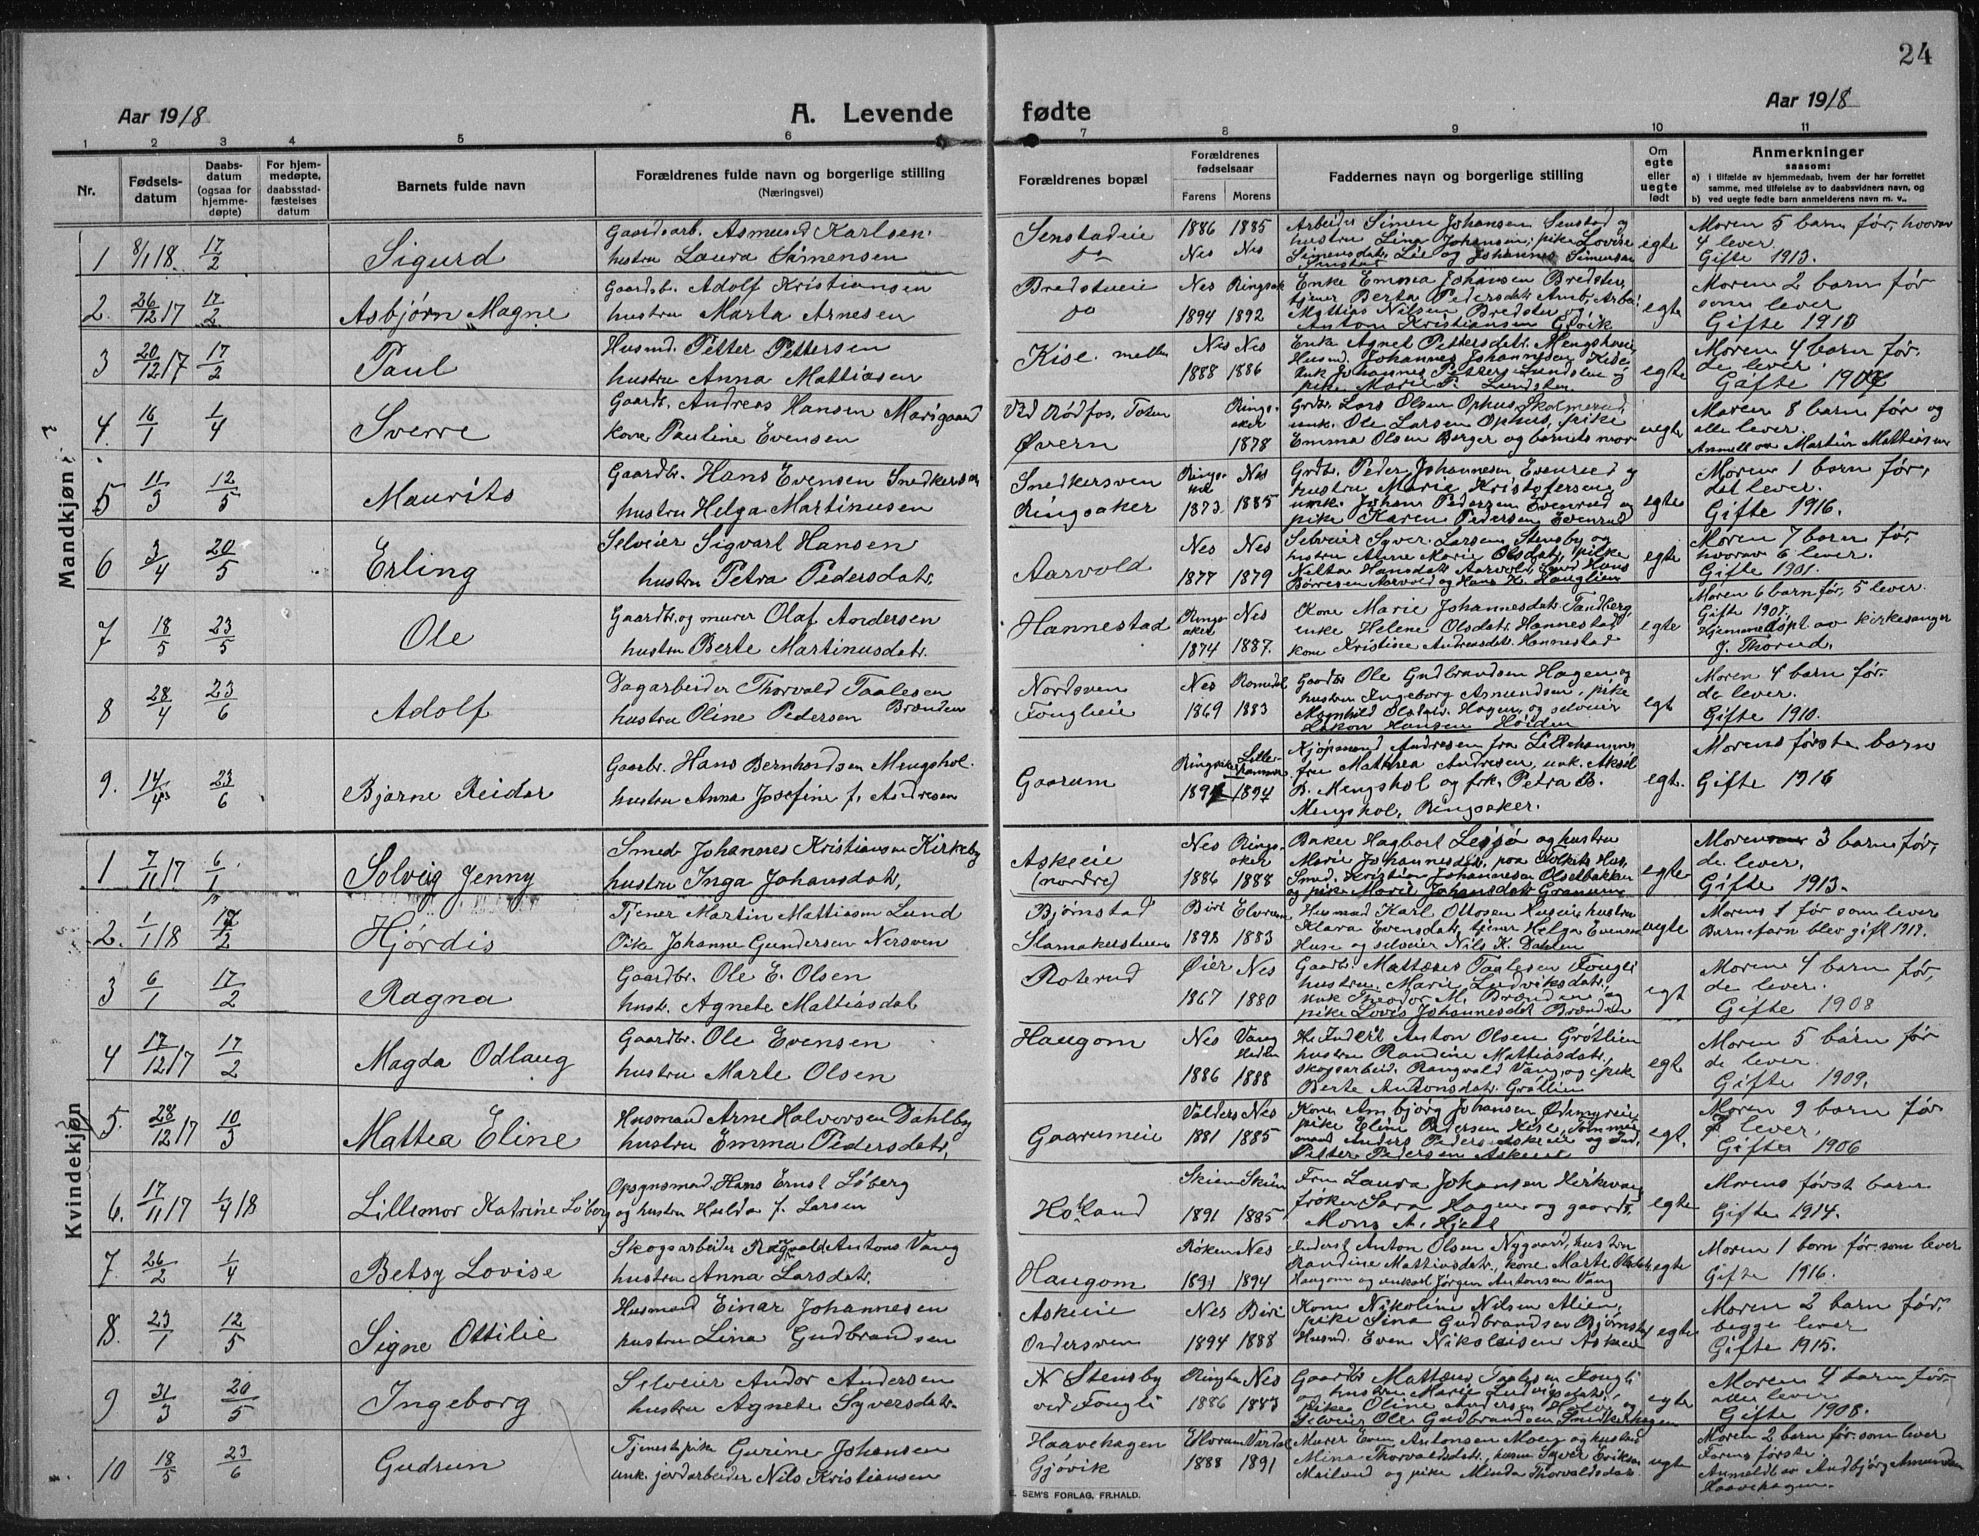 24
Aar 1918
A. Levende
fødte
Aar 1918
1 2 3 4 5 6 7 8 9 10 11
Nr.
Fødsels-
datum
Daabs-
datum
(ogsaa for
hjemme-
døpte)
For hjem-
medøpte,
daabsstad-
fæstelses
datum
Barnets fulde navn
Forældrenes fulde navn og borgerlige stilling
(Næringsvei)
Forældrenes bopæl
Forældrenes
fødselsaar
Farens Morens
Faddernes navn og borgerlige stilling
Om
egte
eller
uegte
født
Anmerkninger
saasom:
a) i tilfælde av hjemmedaab, hvem der har forrettet
samme, med tilføielse av to daabsvidners navn, og
b) ved uegte fødte barn anmelderens navn m. v.
Mandkjøn
1 8/1 18. 17/2 Sigurd
Gaardsarb. Asmund Karlsen
hustru Laura Simensen
Senstadeie
do
1886 1885
Nes Nes
Arbeider Simen Johansen Senstad og
hustru Lina Johansen, pike Lovise
Simensdatr. Lie og Johannes Simensen
Senstad
egte
Moren 5 barn før, hvorav
4 lever.
Gifte 1913.
2. 26/12 17 17/2 Asbjørn Magne
Gaardb. Adolf Kristiansen
hustru Marta Arnesen
Bredstueie
do
Nes Ringsak
1894 1892
Enke Emma Johansen Bredstu,
tjener Berta Pedersdatr.
Mattias Nilsen Bredstu og
Anton Kristiansen Gjøvik
egte
Moren 2 barn før
som lever
Gifte 1910
3 20/12 17 17/2 Paul
Husmd. Petter Pettersen
hustru Anna Mattiasen
Kise. mellem
Nes Nes
1888 1886
Enk Agnet Pettersdatr. Mengshoel,
Husmd. Johannes Johannesen Kise
unk Johannes Petters. Lundsten og
pike Marie P. Lundsten
egte
Moren 4 barn før.
de lever.
Gifte 190
4. 16/1 1/4 Sverre
Gaardb. Andreas Hansen Marigaard
kone Pauline Evensen
Ved Rødfos, Toten
Øvern
Rings-
aker
1878
Grdbr. Lars Olsen Ophus,
unk. Ole Larsen Ophus, pike
Emma Olsen Berger og barnets mor
uegte
Moren 8 barn før og
alle lever.
Anmelt av Martin Mattiasen
5 11/3 12/5 Maurits
Gaardbr. Hans Evensen Snedkersven
hustru Helga Martinusen
Snedkersven
Ringsaker
Nes
1873 1885
Grdbr. Peder Johannesen Evenrud og
hustru Marie Kristofersen,
unk. Johan Pedersen Evenrud og
pike Karen Pedersen Evenrud
egte
Moren 1 barn før,
det lever.
Gifte 1916.
6 3/4 20/5 Erling
Selveier Sigvart Hansen
hustru Petra Pedersdatr.
Aarvold
Nes Nes
1877 1879
Selveier Syver Larsen Stensby og
hustru Anne Marie Olsdatr, pike
Nilta Hansdatr Aarvold, Hans
Børresen Aarvold og Hans K. Hauglien
egte
Moren 7 barn før
hvorav 6 lever.
Gifte 1901.
7 18/5 23/5 Ole
Gaardbr. og murer Olaf Andersen
hustru Berte Martinusdatr.
Hannestad
Rings-
aker Nes
1874 1887.
Kone Marie Johannesdatr Tandberg,
enke Helene Olsdatr. Hannestad
kone Kristine Andreasdatr. Hannestad
egte
Moren 6 barn før, 5 lever.
Gifte 1907.
Hjemmedøpt av kirkesanger
J. Thorud.
8 28/4 23/6 Adolf
Dagarbeider Thorvald Taalesen
hustru Oline Pedersen Brænden
Nordsven
Fouglieie
Nes Romedal
1869 1883
Gaardbr Ole Gudbrandsen Hagen og
hustru Ingeborg Asmundsen, pike
Magnhild Olsdatr. Hagen og selveier
Håkon Hansen Høiden
egt
Moren 4 barn før.
de lever.
Gifte 1910.
9. 14/4 23/6 Bjarne Reidar
Gaarbr. Hans Bernhardsen Mengshol.
hustru Anna Josefine f. Andresen
Gaarum
Ringsaker Lille-
hammer
189 1894
Kjøpmand Andresen fra Lillehammer
fru Matthea Andresen, unk. Aksel
B. Mengshol og frk. Petra B.
Mengshol, Ringsaker.
egt.
Morens første barn
Gifte 1916
Kvindekjøn
1 7/11 17 6/1 Solveig Jenny
Smed Johannes Kristiansen Kirkeby
hustru Inga Johansdatr,
Askeeie
(nordre)
Nes Rings-
aker
1886 1888
Baker Hagbart Lessø og hustru
Marie Johannesdatr, paa Folkets Hus,
Smed. Kristian Johannesen Olselbakken
og pike Marie Johansdatr Granum
egte
Moren 3 barn før,
de lever.
Gifte 1913.
2. 1/1 18 17/2 Hjørdis
Tjener Martin Mattiasen Lund
Pike Johanne Gundersen Nersven
Bjørnstad
Slamakerstuen
Biri Elverum
1898 1883
Husmad Karl Ottosen Huseie hustru
Klara Evensdatr, tjener Helga Evensen
Huse og selveier Nils K. Dahlen
uegte
Morens 1 før som lever
Barnefaren blev gift 1917.
3 6/1 17/2 Ragna
Gaardbr. Ole E. Olsen
hust. Agnete Mattiasdat
Roterud
Øier Nes
1867 1880
Gaardbr. Mattæus Taalesen Fougli
hustru. Marie Ludviksdatr,
unk Theodor M. Brænden og
pike Lovis Johannesdat Brænden
egt
Moren 4 barn før,
de lever.
Gifte 1908
4 17/12 17 17/2 Magda Odlaug
Gaardbr. Ole Evensen
hustru Marte Olsen
Haugom
Nes Vang
Heden
1886 1888
Anton Olsen Grøtlien
hustru Randine Mattiasdatr,
skogsarbeid. Rangvald Vang, og pike
Berte Antonsdatr. Grøtlien
egt
Moren 5 barn før
de lever.
Gifte 1909.
5. 28/12 17 10/3 Mattea Eline
Husmand Arne Halvorsen Dahlby
hustru Emma Pedersdatr,
Gaarumeie
Valders Nes
1881 1885
Kone Ambjørg Johansen Ødemyreie,
pike Eline Pedersen Kise,
Anders Pedersen Askeeie og
Petter Pedersen Askeeie
egt.
Moren 9 barn før
7 lever,
Gifte 1906
6. 17/11 17 1/4 18 Lillemor Katrine Løberg
Opsynsmad. Hans Ernst Løberg
og hustru Hulda f. Larsen
Hovland
Skien Skien
1891 1885
Fru Laura Johansen Kirkevang
frøken Sara Hagen og gaardb,
Mons A. Hjell
egte
Morens først barn
Gifte 1914.
7. 26/2 1/4 Betsy Lovise
Skogsarbeider Ragvald Antons Vang
hustru Anna Larsdatr.
Haugom
Røken Nes
1891 1894
Inderst Anton Olsen Nygaard, hustru
Randine Mattiasdatr, kone Marte Olsdatr
Haugom og unkarl Jørgen Antonsen Vang
egte
Moren 1 barn før som lever
Gifte 1916.
8. 23/1 12/5 Signe Ottilie
Husmand Einar Johannesen
hustru Lina Gudbrandsen
Askeeie
Ordersven
Nes Biri
1894 1888
Kone Nikoline Nilsen Alien,
pike Lina Gudbrandsen Bjørnstad
Husmd. Even Nikolaisen Askeeie
egte
Moren 2 barn før.
begge lever
Gifte 1915.
9 31/3 20/5 Ingeborg
Selveier Andor Andersen
hustru Agnete Syversdatr.
N Stensby
ved Fougli
Nes
1886 1883
Gaardbr Mattæus Taalesen Fougli
og hustru Marie Ludvigsdatr,
pike Oline Andersen Holv og
Selveier Ole Gudbrandsen Snedkerhagen
egte
Moren 4 barn før
alle lever
Gifte 1908.
10 18/5 23/6 Gudrun
Tjenestepike Gurine Johansen
unk. jordarbeider Nils Kristiansen
Haavehagen
Gjøvik
Elverum Vardal
1888 1891
Murer Even Antonsen Moen og hustru
Mina Thorvaldsdatr, kone Syver Eriksen
Meilund og pike Minda Thorvaldsdatr.
uegte
Moren 2 barn før som lever
Farens første.
Anmeldt av Andbjørg Amundsen
Haavehagen.
E. SEM'S FORLAG, FR.HALD.